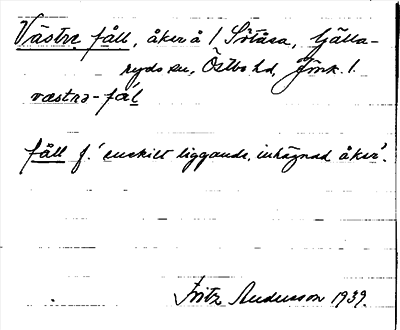 Västra fåll, åker å 1 Sötåsa, Gjälla-
ryds sn, Östbo hd, Jönk. l.
væstrə-få'l
fåll f. 'enskilt liggande, inhägnad åker'.
Fritz Andersson 1939.